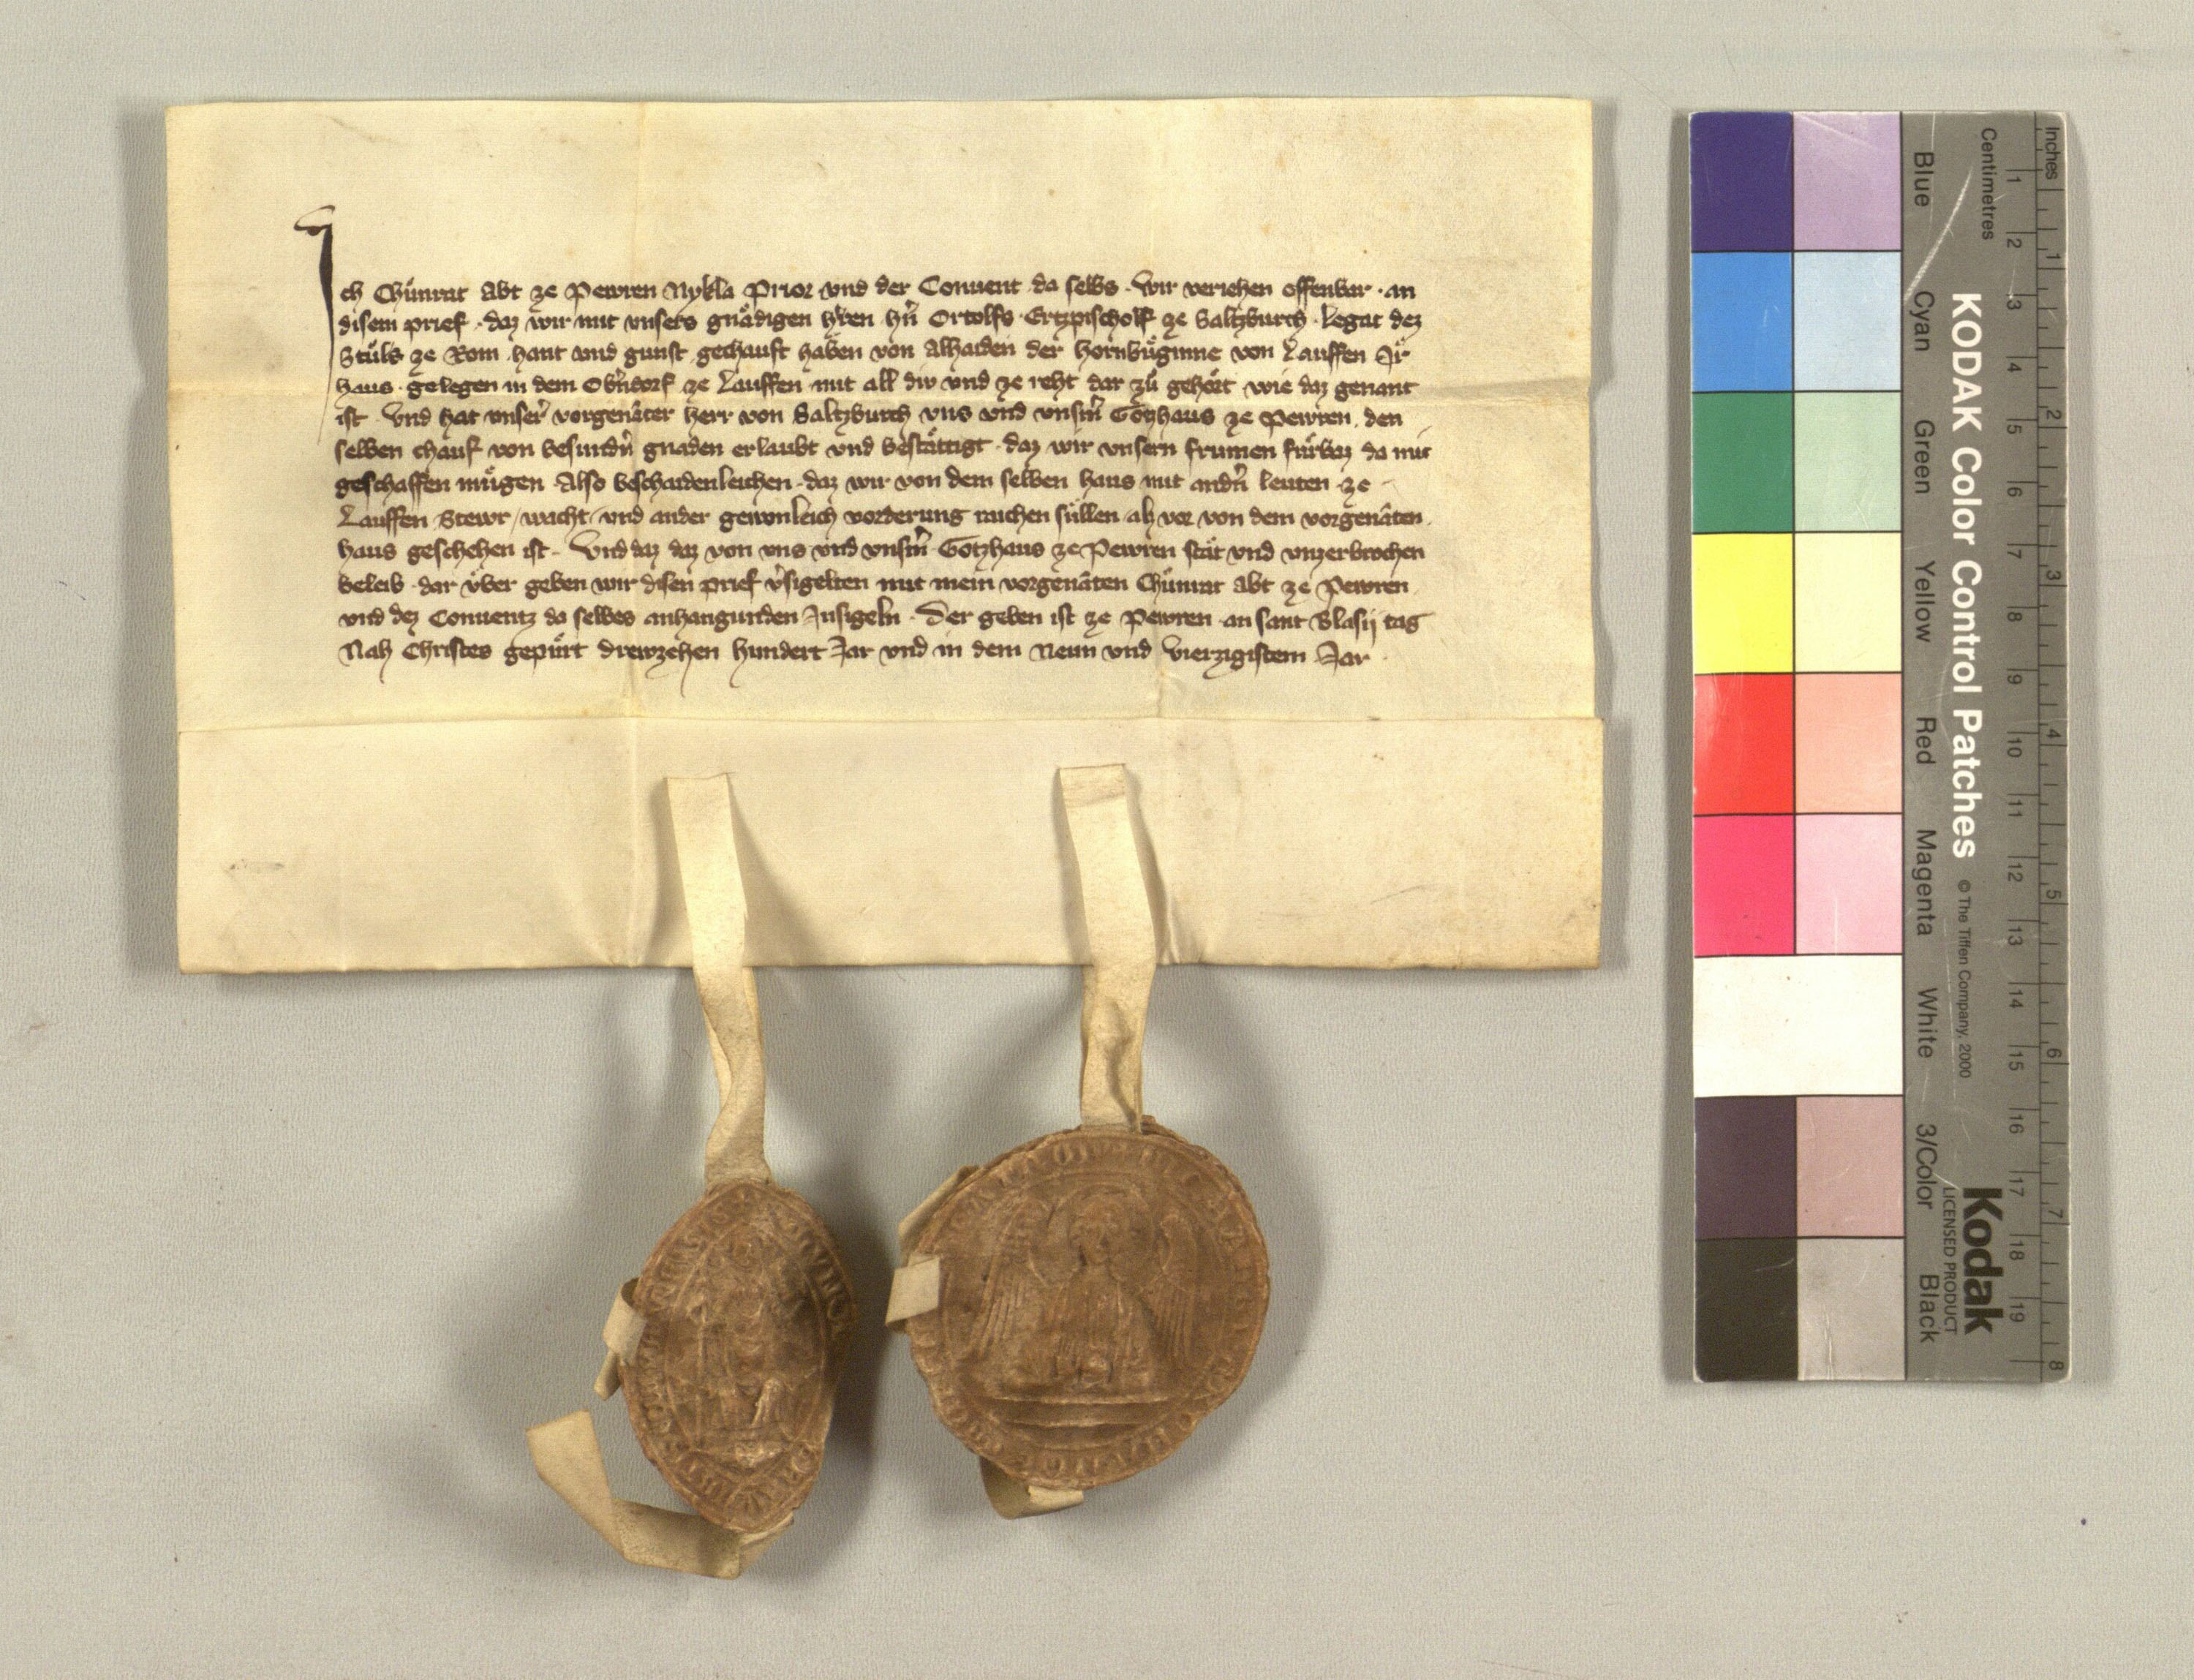 Ich Chuͤnrat Abt ze Pewren Nykla Prior vnd der Conuent da selbs · wir veriehen offenbar · an
disem prief · daz wir mit vnsers gnaͤdigen hr̄en hn̄ Ortolfs · Ertzpischolf ze Saltzburch · legat dez
Stuͤls ze Rom · hant vnd gunst gechauft haben von Alhaiden der Hornbuͤginne von Lauffen Jr
haus · gelegen in dem Obn̄dorf ze Lauffen mit all div vnd ze reht dar zuͤ gehoͤrt wie daz genant
ist · vnd hat vnser vorgenāter herr von Saltzburch vns vnd vnsm̄ Gotzhaus ze Pewren · den
selben chauf von besundn̄ gnaden erlaubt vnd bestaͤttigt · daz wir vnsern frumen fuͤrbaz da mit
geschaffen muͤgen · Also beschaidenleichen · daz wir von dem selben haus mit andn̄ leuten ze
Lauffen Stewr / wacht / vnd ander gewonleich vorderung suͤllen · alz vor von dem vorgenāten
haus geschehen ist · Vnd daz daz von vns vnd vnsm̄ Gotzhaus ze Pewren staͤt vnd vnzerbrochen
beleib · dar vͤber geben wir disen prief v̄sigelten mit mein vorgenāten Chuͤnrat Abt ze Pewren
vnd dez Conuentz da selbes anhangunden Jnsigeln · Der geben ist ze Pewren · an sant Blasij tag
Nah Christes gepuͤrt drewzehen hundert Jar vnd in dem Neun vnd vierzigistem Jar ·
KODAK Color Control Patches © The Tiffen Company, 2000
Kodak
LICENSED PRODUCT
Blue Cyan Green Yellow Red Magenta White 3/Color Black
Inches 1 2 3 4 5 6 7 8
Centimetres 1 2 3 4 5 6 7 8 9 10 11 12 13 14 15 16 17 18 19